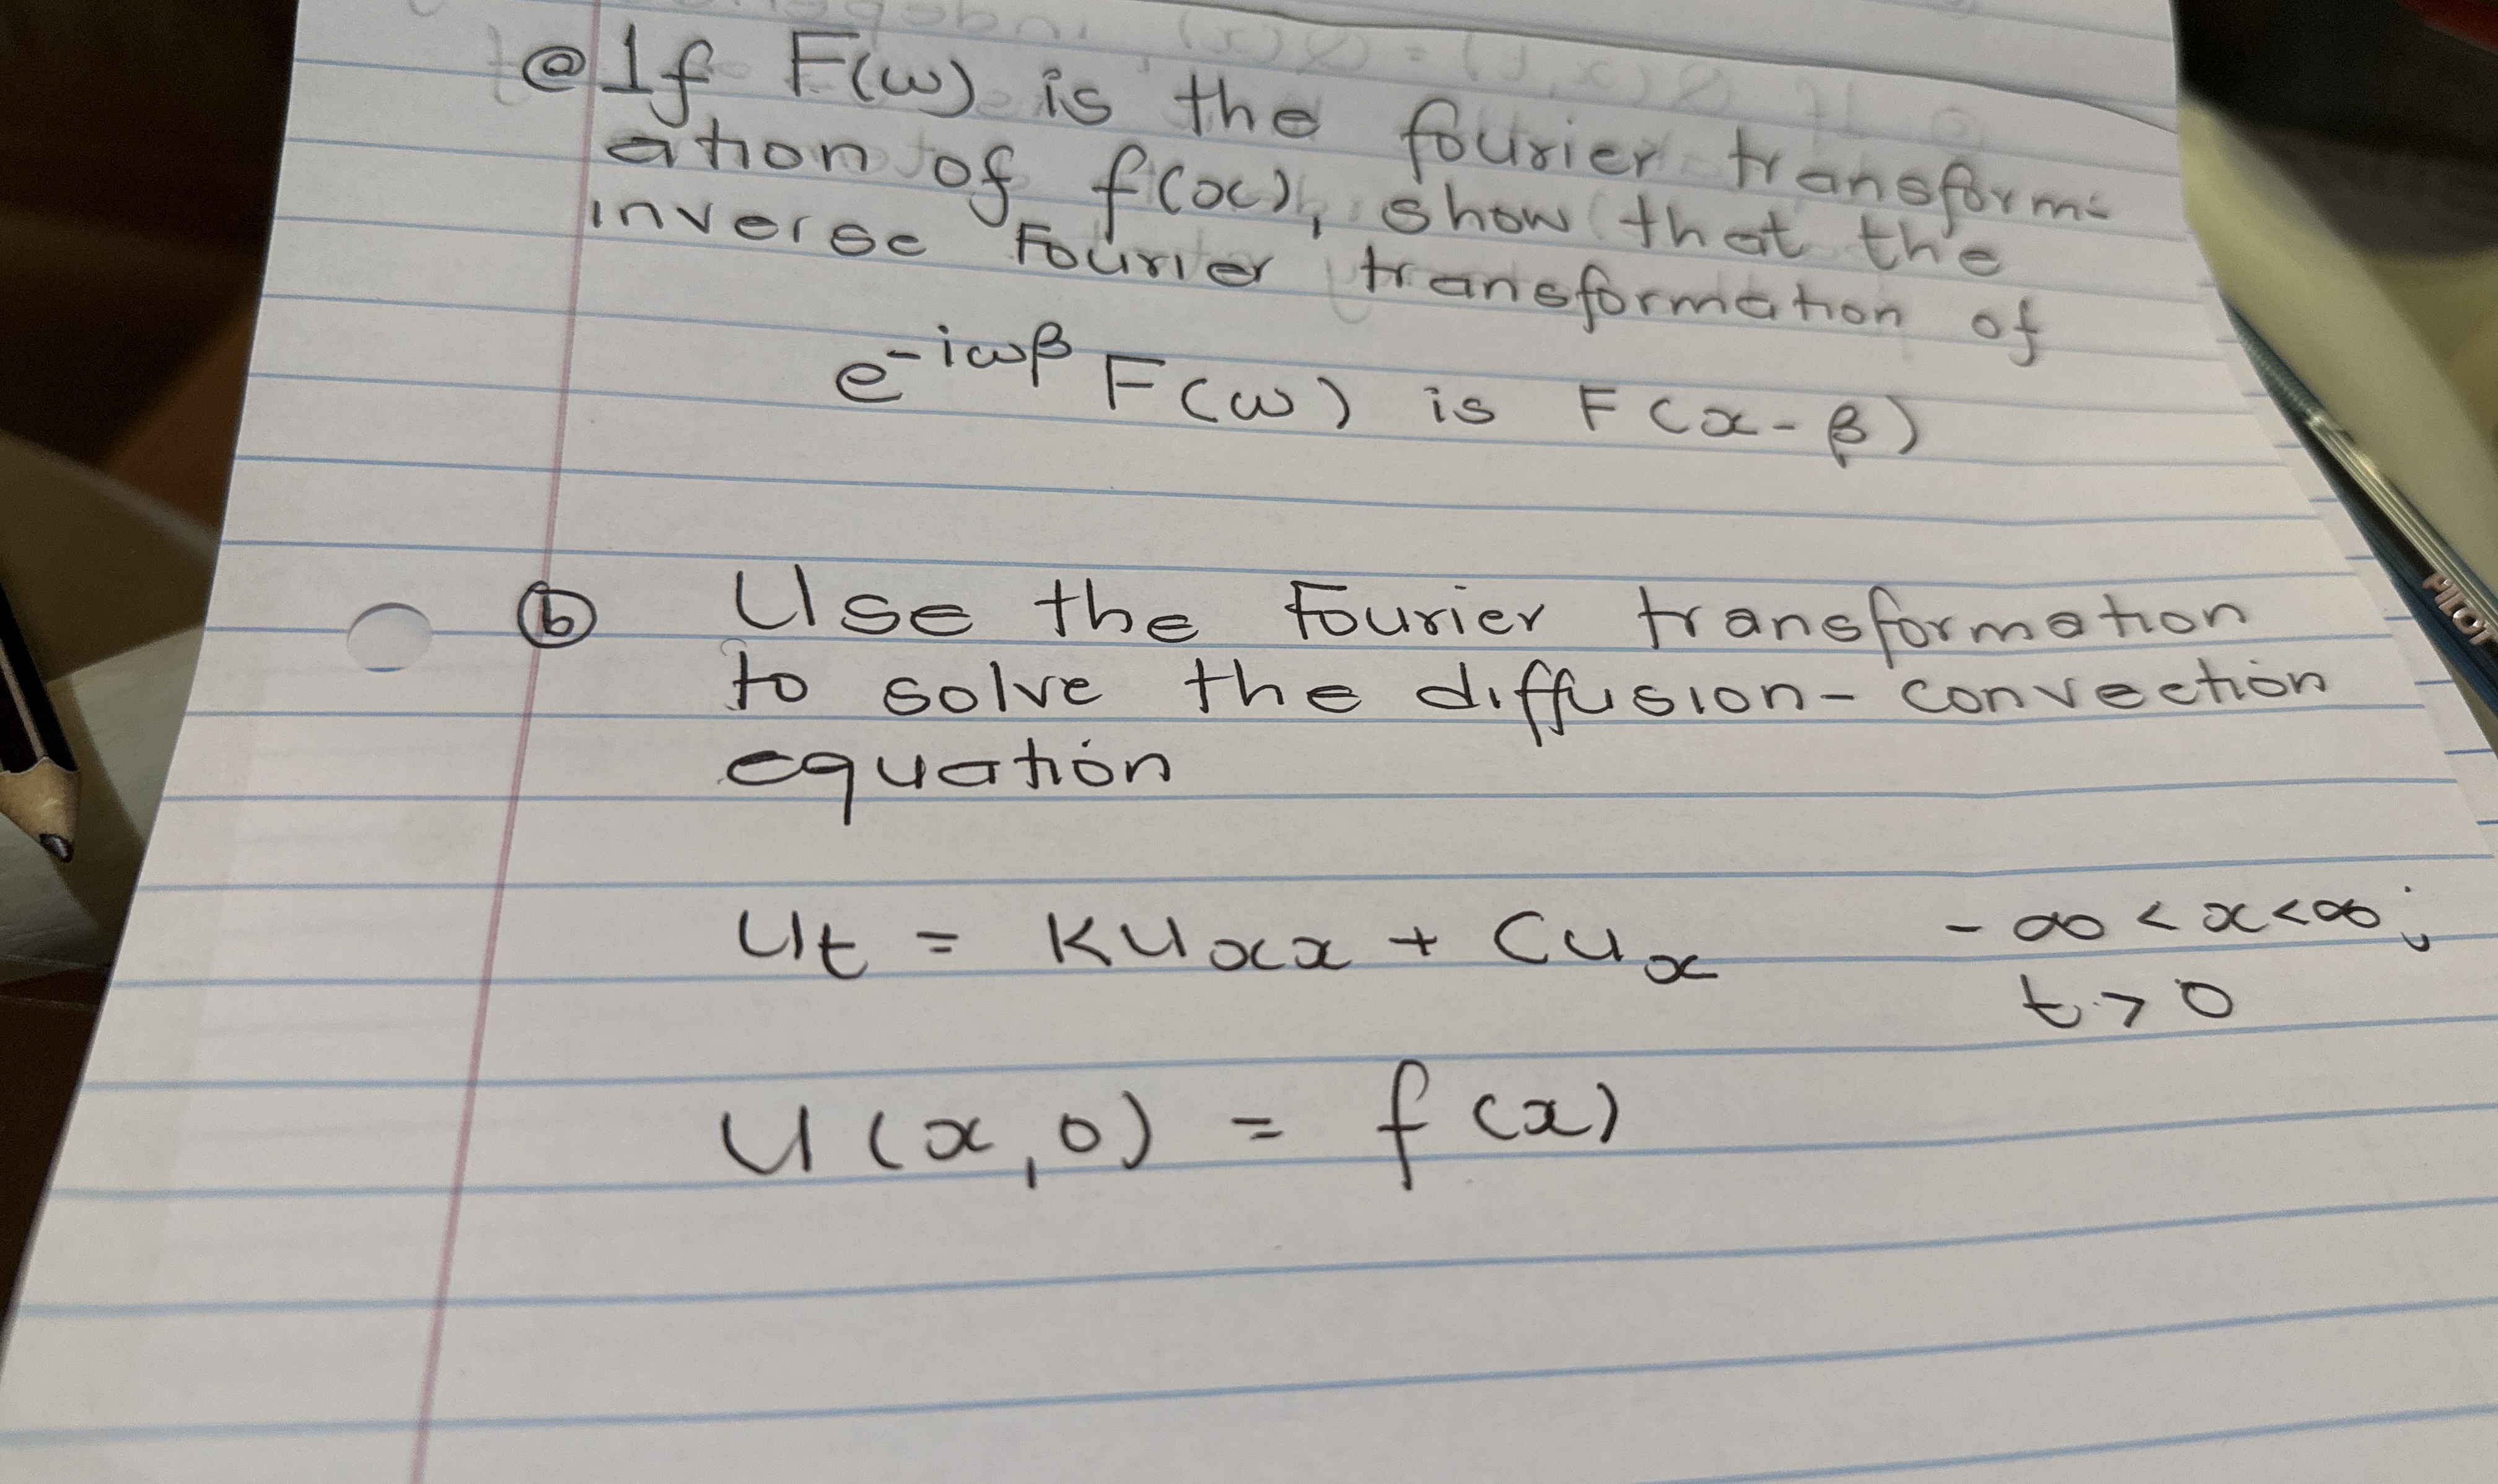 ⓐ If F(ω) is the fourier transform-
ation of f(x), show that the
inverse Fourier transformation of
e^{-iωβ} F(ω) is F(x-β)
ⓑ Use the Fourier transformation
to solve the diffusion-convection
equation
u_t = Ku_{xx} + Cu_x -∞<x<∞;
t>0
u(x,0) = f(x)
PILOT